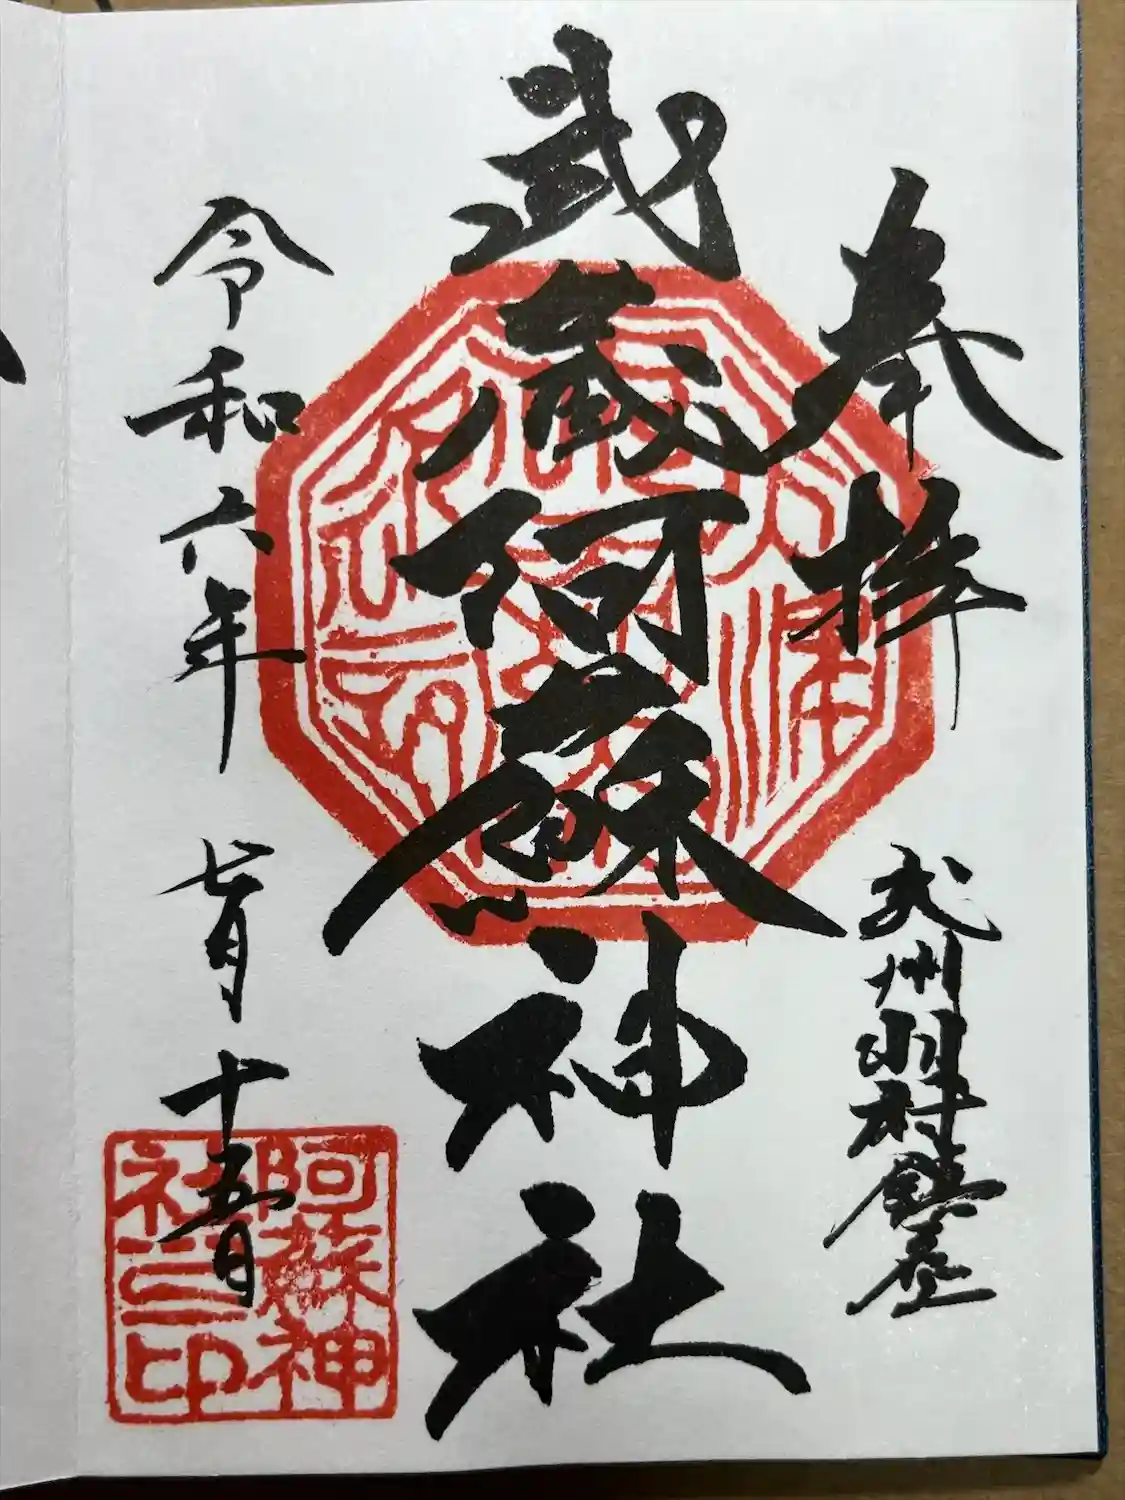 奉拝
武州羽村鎮座
武蔵阿蘇神社
令和六年 七月 十五日
阿蘇神
社之印